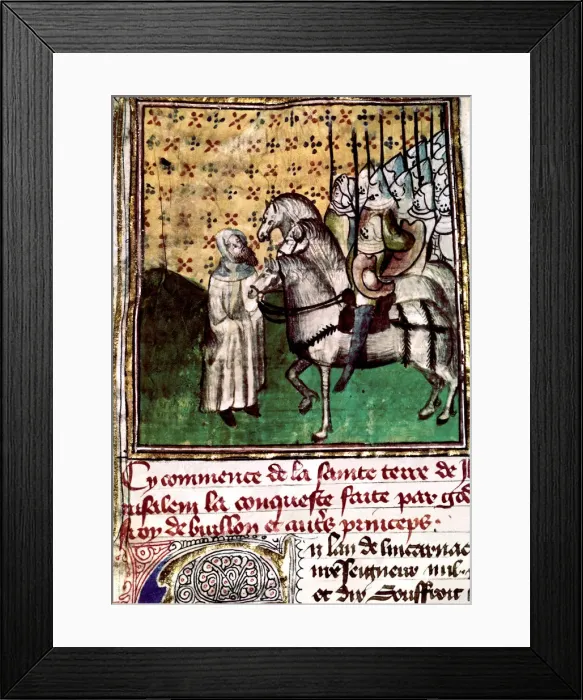 Cy commence de la sainte terre de J
rusalem la conqueste faite par god
froy de buillon et autrs princeps:
n lan de lincarnac
nre Seigneur mil.
et dix Souffroit